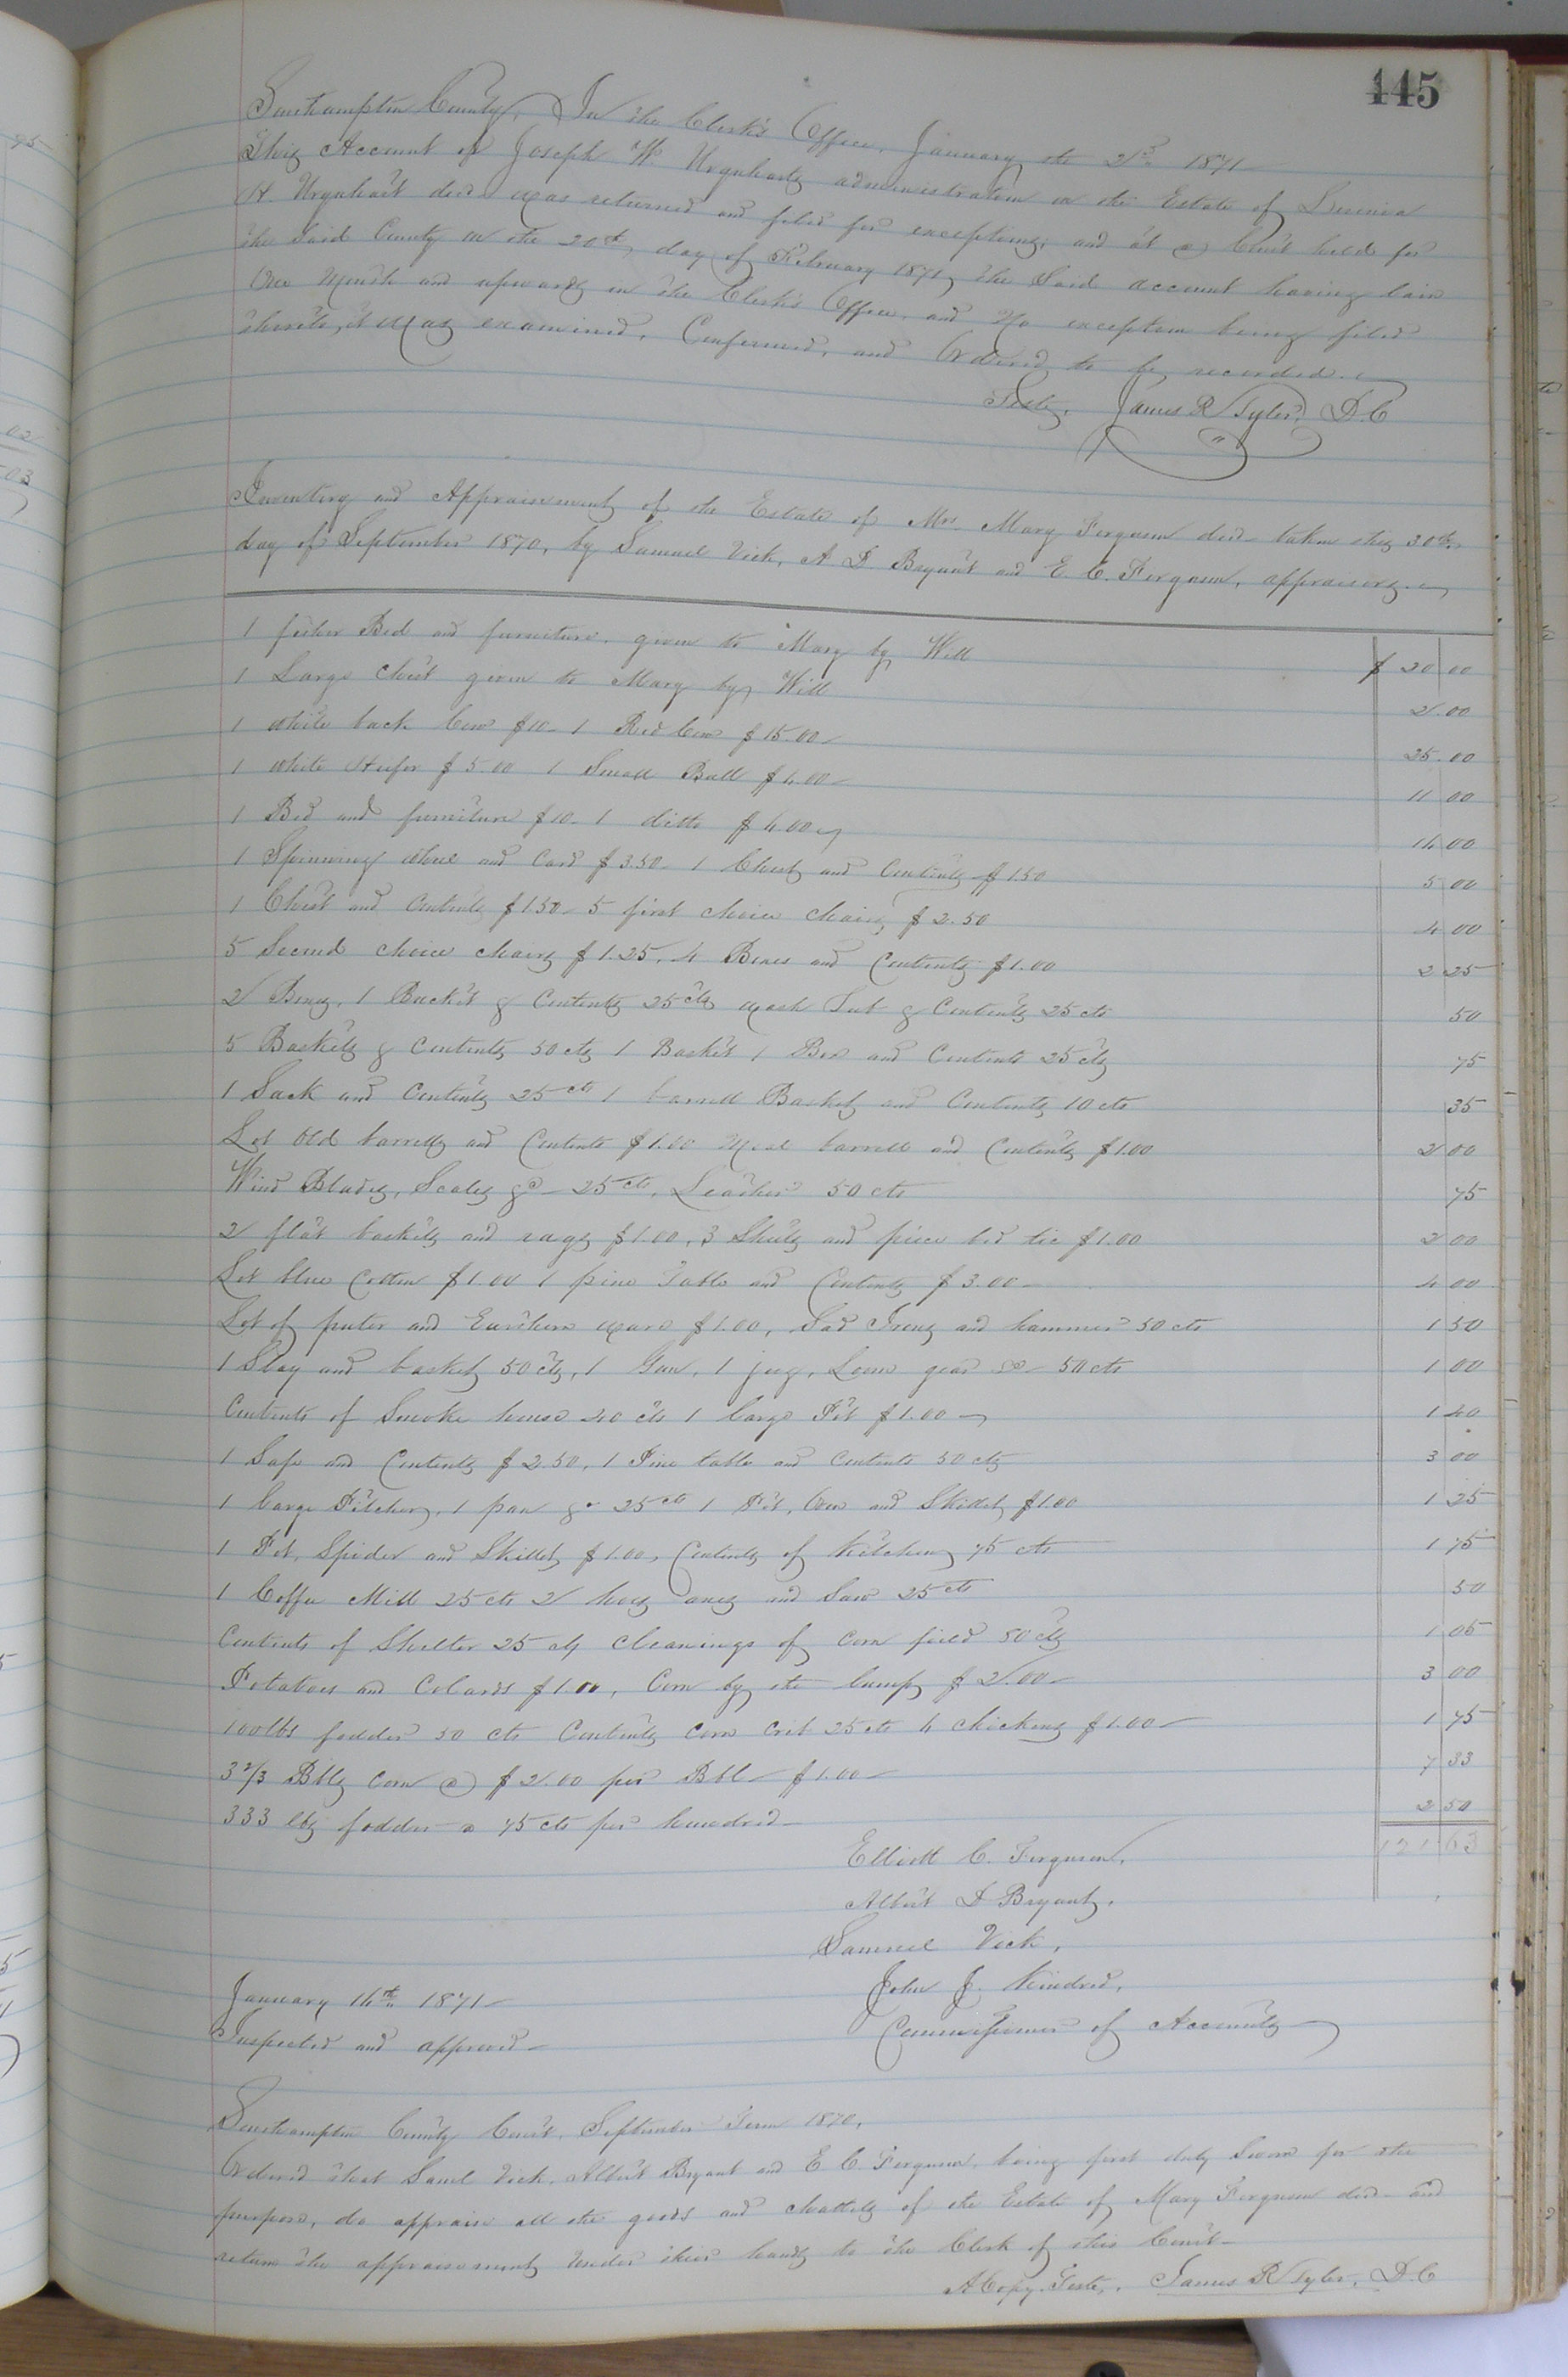 445
Southampton County, In the Clerk's Office, January the 2nd 1871
This Account of Joseph W. Urquharts administration on the Estate of
H. Urquhart decd was returned and filed for exceptions; and at a Court held for
the said County on the 20th day of February 1871, the Said account having lain
One Month and upwards in the Clerk's Office, and No exception being filed
thereto, it was examined, Confirmed, and Ordered to be recorded.
Teste, James R Tyler, D.C
Inventory and Appraisement of the Estate of Mrs. Mary Ferguson decd taken this 30th
day of September 1870, by Samuel Vick, A. D. Bryant and E. C. Ferguson, appraisers.
1 fether Bed and furniture. given to Mary by Will $ 20 00
1 Large Chest given to Mary by Will 2.00
1 White back Cow $10 - 1 Red Cow $15.00 25.00
1 White Heifer $5.00 1 Small Bull $4.00 11 00
1 Bed and furniture $10 - 1 ditto $4.00 14 00
1 Spinning Wheel and Card $3.50 - 1 Chest and Contents $1.50 5 00
1 Chest and Contents $1.50 - 5 first choice chairs $2.50 4 00
5 Second choice chairs $1.25, 4 Boxes and Contents $1.00 2 25
2 1 Basket & Contents 25cts Wash Tub & Contents 25 cts 50
5 Baskets & Contents 50 cts 1 Basket 1 Box and Contents 25 cts 75
1 Sack and Contents 25cts 1 barrell Basket and Contents 10 cts 35
Lot Old barrells and Contents $1.00 Meal barrell and Contents $1.00 2 00
Wind Blades, Scales &c - 25cts, Leather 50 cts 75
2 flat baskets and rags $1.00, 3 Sheets and piece bed tic $1.00 2 00
Lot blue Cotton $1.00 1 pine Table and Contents $3.00 4 00
Lot of puter and Earthern ware $1.00, Sad Irons and hammer 50 cts 1 50
1 Slay and basket 50 cts, 1 Gun, 1 jug, Loom gear &c - 50 cts 1 00
Contents of Smoke house 40 cts 1 large Pot $1.00 1 40
1 Safe and Contents $2.50, 1 Pine table and Contents 50 cts 3 00
1 large Pitcher, 1 pan &c 25cts 1 Pot, Oven and Skillet $1.00 1 25
1 Pot, Spider and Skillet $1.00, Contents of Kitchen 75 cts 1 75
1 Coffee Mill 25 cts 2 hoes axes and Saw 25cts 50
Contents of Shelter 25 cts cleanings of Corn field 80 cts 1 05
Potatoes and Colards $1.00, Corn by the lump $2.00 3 00
100 lbs fodder 50 cts Contents Corn Crib 25 cts 4 chickens $1.00 1 75
3 2/3 Bbls Corn @ $2.00 per Bbl - $1.00 7 33
333 lbs fodder a 75 cts per hundred 2 50
121 63
Elliott C. Ferguson,
Albert D Bryant,
Samuel Vick,
January 14th 1871 John J. Kindred,
Inspected and approved Commissioner of Accounts
Southampton County Court, September Term 1870,
Ordered that Saml Vick, Albert Bryant and E C. Ferguson, being first duly Sworn for the
purpose, do appraise all the goods and chattels of the Estate of Mary Ferguson decd and
return the appraisement under their hands to the Clerk of this Court
A Copy. Teste, James R Tyler, D.C